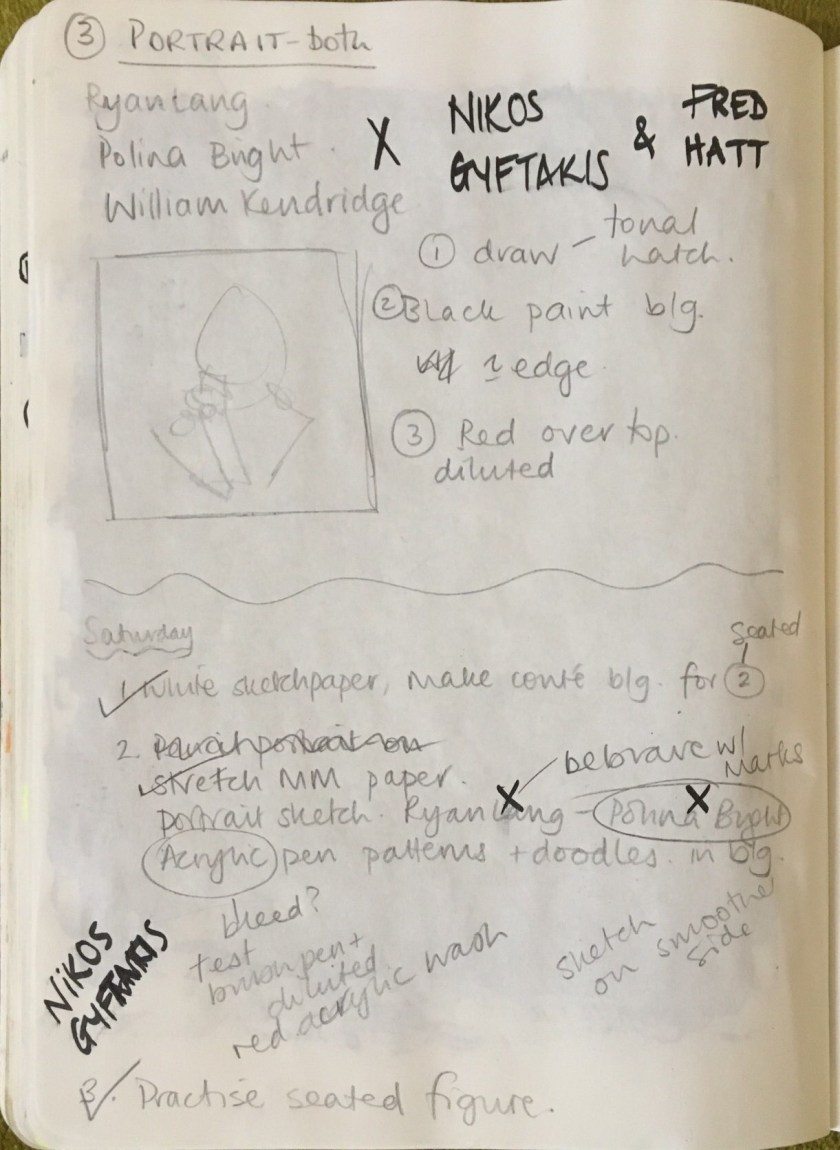 ③ PORTRAIT - both
Ryan Lang
Polina Bright
William Kendridge
X NIKOS GYFTAKIS & FRED HATT
① draw - tonal hatch.
② Black paint b/g.
edge
③ Red over top.
diluted
Saturday
seated
1. White sketchpaper, make conté b/g. for ②
2.
stretch MM paper.
be brave w/ marks
portrait sketch. Ryan Lang - Polina Bright
Acrylic pen patterns + doodles. in b/g.
bleed?
test
brush pen +
diluted
red acrylic wash
sketch
on smoother
side
NIKOS
GYFTAKIS
3. Practise seated figure.